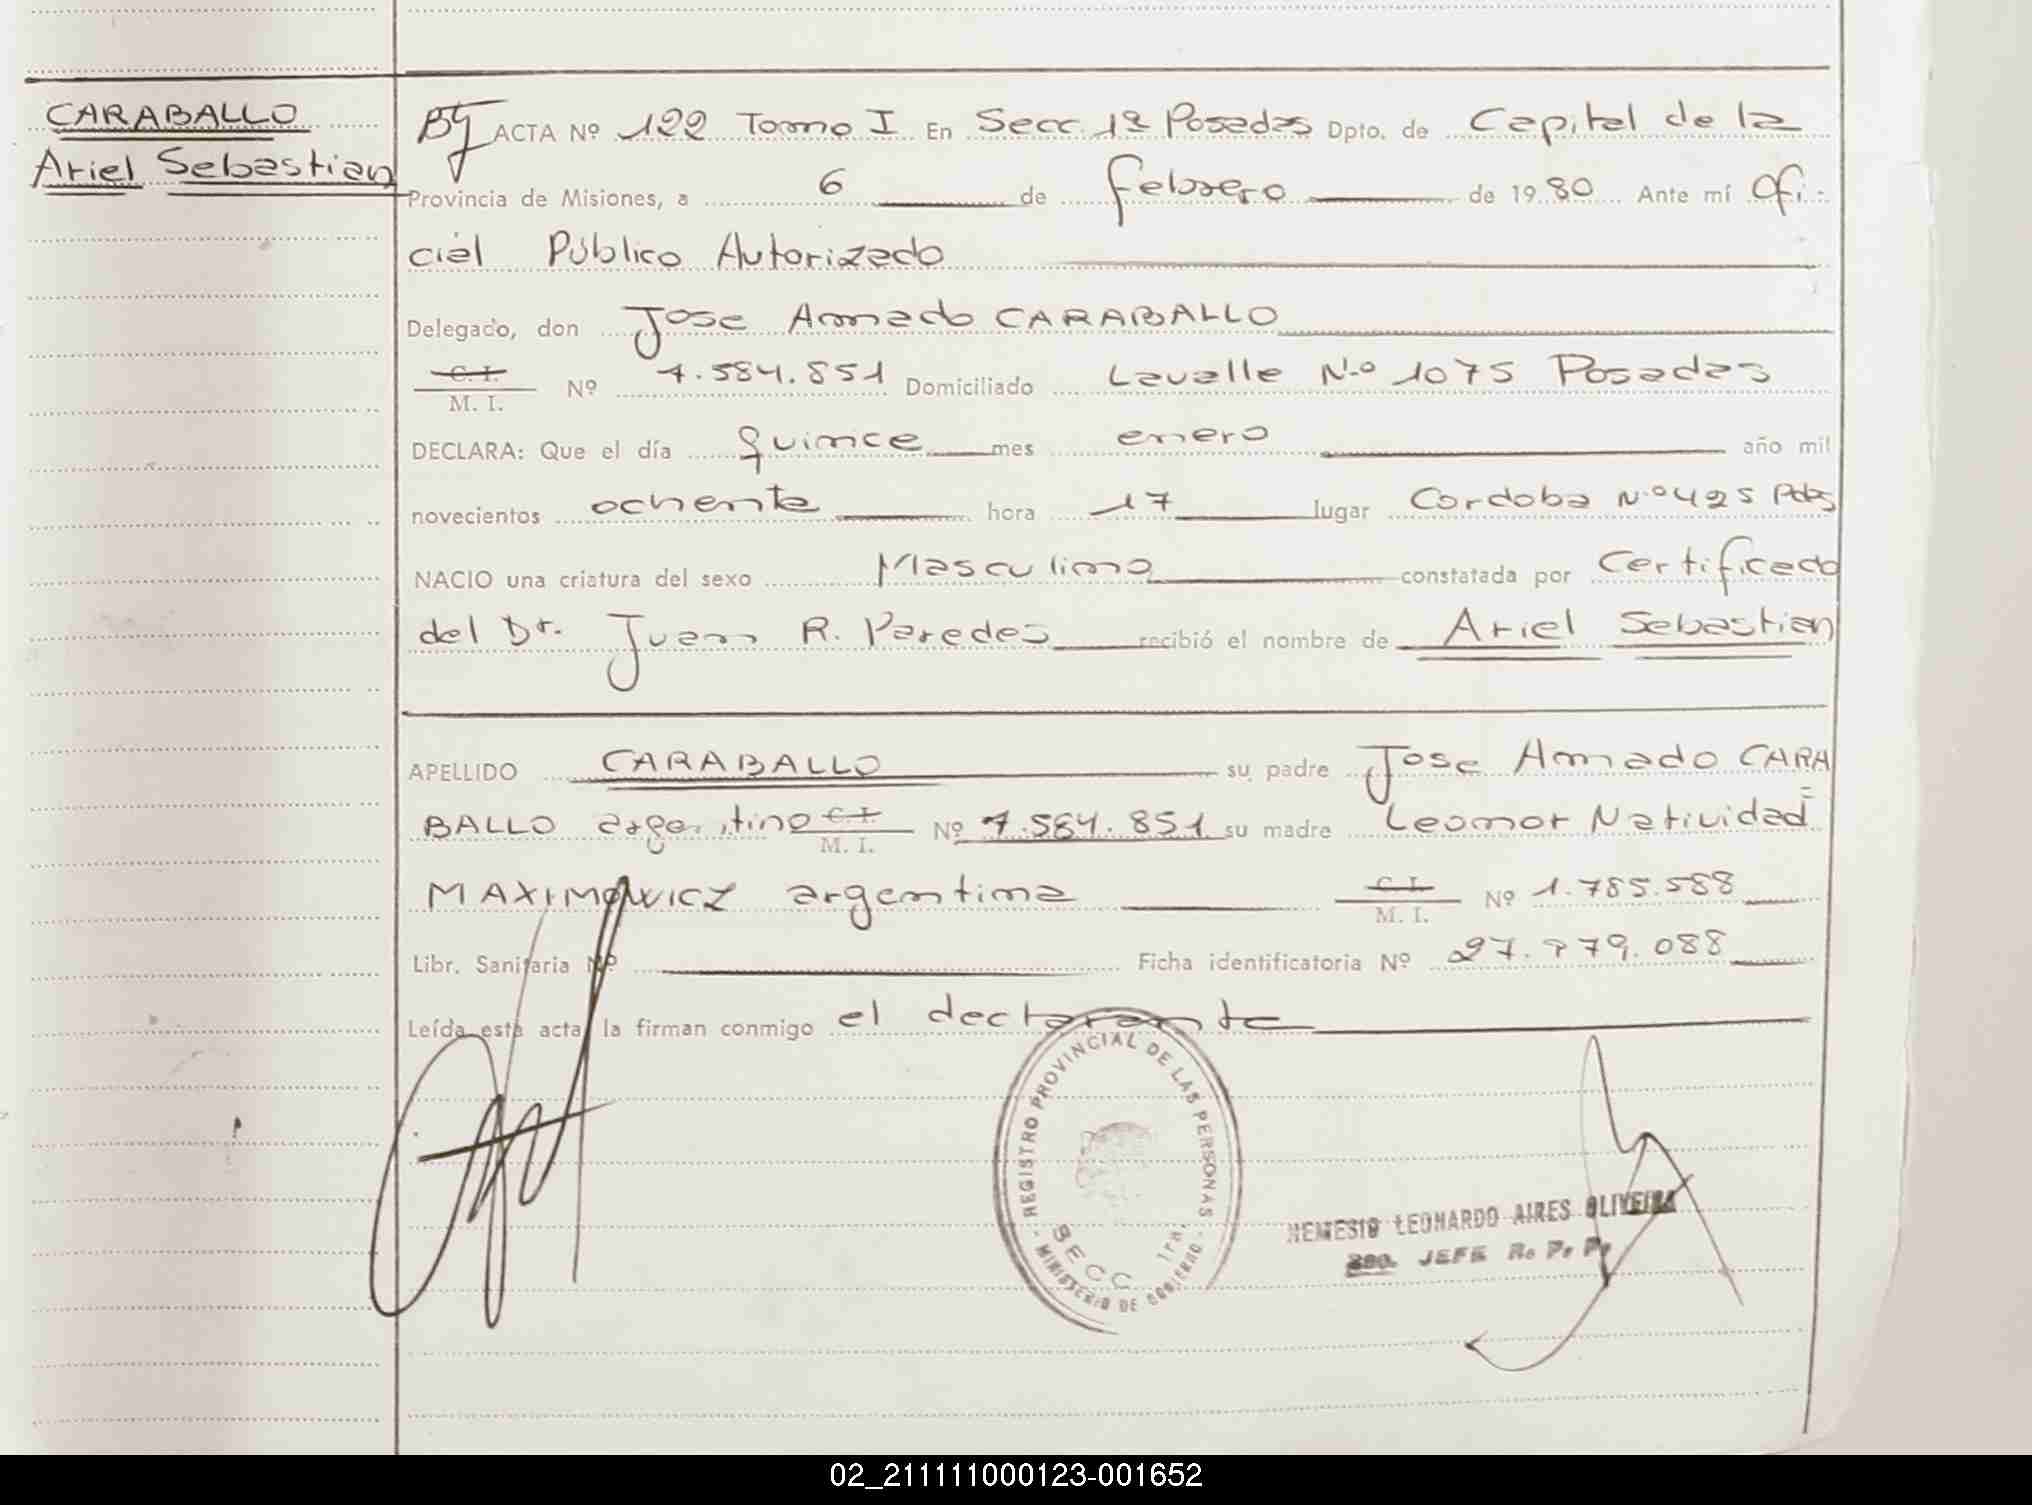 CARABALLO
Ariel Sebastian
ACTA Nº 122 Tomo I En Secc. 1ª Posadas Dpto. de Capital de la
Provincia de Misiones, a 6 de febrero de 1980 Ante mí Ofi-
cial Público Autorizado
Delegado, don Jose Armado CARABALLO
C. I.
M. I. Nº 7.584.851 Domiciliado Lavalle N.º 1075 Posadas
DECLARA: Que el día quince mes enero año mil
novecientos ochenta hora 17 lugar Cordoba N.º 425 Pdas
NACIO una criatura del sexo Masculino constatada por Certificado
del Dr. Juan R. Paredes recibió el nombre de Ariel Sebastian
APELLIDO CARABALLO su padre Jose Amado CARA
BALLO argentino C. I. M. I. Nº 7.584.851 su madre Leonor Natividad
MAXIMOWICZ argentina C. I. M. I. Nº 1.785.588
Libr. Sanitaria Nº Ficha identificatoria Nº 27.779.088
Leída esta acta, la firman conmigo el declarante
REGISTRO PROVINCIAL DE LAS PERSONAS
SECC. 1ra.
MINISTERIO DE GOBIERNO
NEMESIO LEONARDO AIRES OLIVEIRA
JEFE R. P. P.
02_211111000123-001652